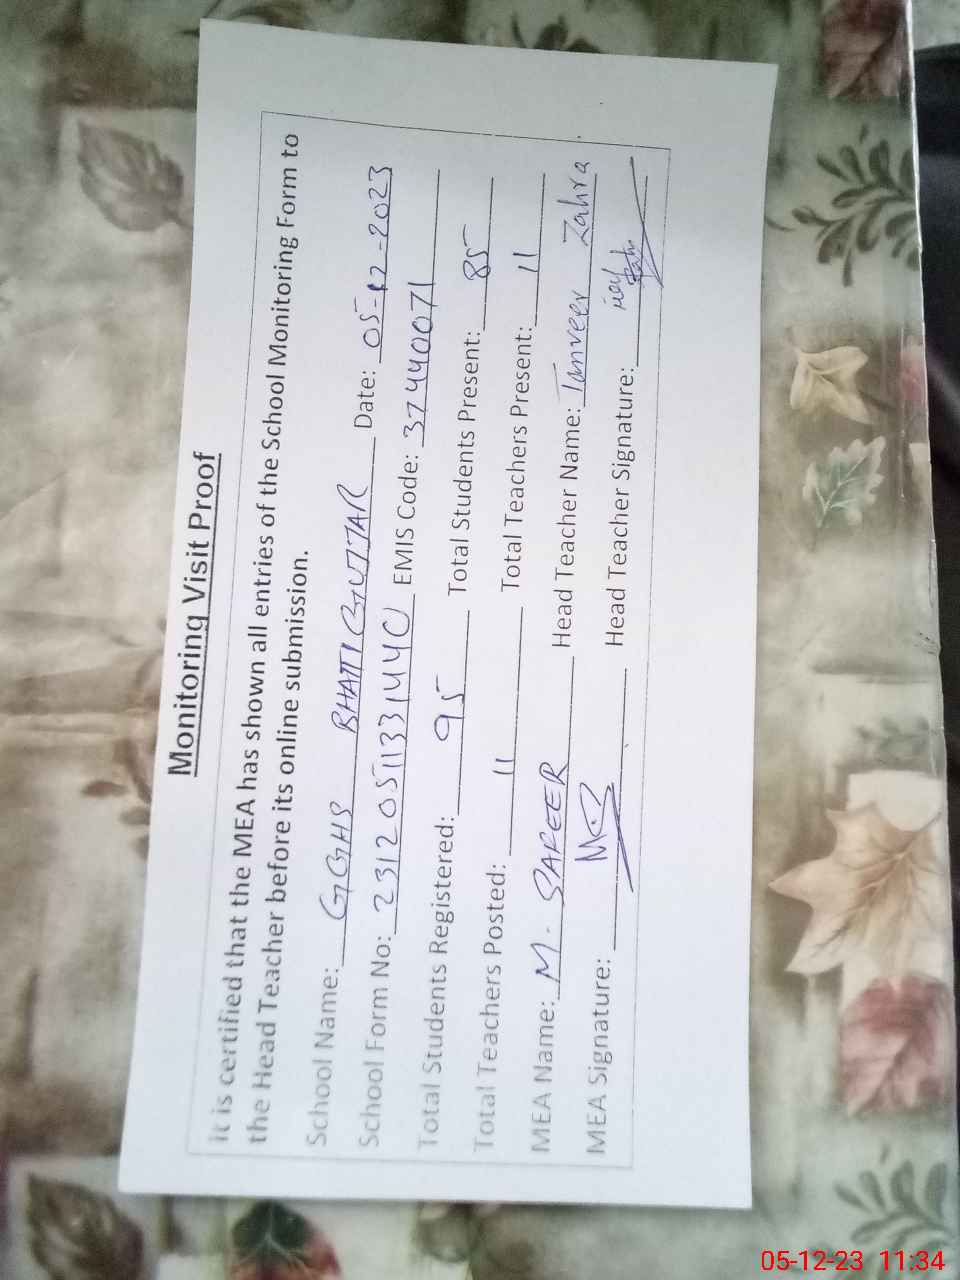 Monitoring Visit Proof
It is certified that the MEA has shown all entries of the School Monitoring Form to
the Head Teacher before its online submission.
School Name: GGHS BHATTI GUTTAR Date: 05-12-2023
School Form No: 23120511331440 EMIS Code: 37440071
Total Students Registered: 95 Total Students Present: 85
Total Teachers Posted: 11 Total Teachers Present: 11
MEA Name: M. SAFEER Head Teacher Name: Tanveer Zahra
MEA Signature: Head Teacher Signature:
05-12-23 11:34